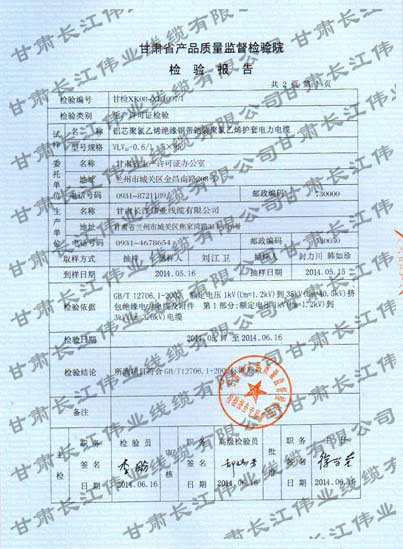 甘肃省产品质量监督检验院
检 验 报 告
共 2 页 第 1 页
检验编号
检验类别 生产许可证检验
试样 名称 铝芯聚氯乙烯绝缘钢带铠装聚氯乙烯护套电力电缆
型号规格 VLV₂₂-0.6/1
委托单位 名称 甘肃省生产许可证办公室
地址 兰州市城关区金昌南路208号
电话号码 0931-8721109 邮政编码 730000
生产单位 名称 甘肃长江伟业线缆有限公司
地址 甘肃省兰州市城关区焦家湾路
电话号码 0931-4678654 邮政编码
取样方式 抽样 刘江卫 抽样人 封力川 韩如珍
到样日期 2014.05.16 抽样日期 2014.05.15
检验依据 GB/T 12706.1-2002 额定电压 1kV(Um=1.2kV)到 35kV(Um=40.5kV)挤
包绝缘电力电缆及附件 第 1 部分:额定电压 1kV(Um=1.2kV)到
3kV(Um=3.6kV)电缆
检验日期 至 2014.06.16
检验结论 所检项目符合 GB/T12706.1-2002
备注
主检 职务 检验员 审核 职务 高级检验员 批准 职务
签名 签名 签名
日期 2014.06.16 日期 2014.06.16 日期 2014.06.16
甘肃长江伟业线缆有限公司